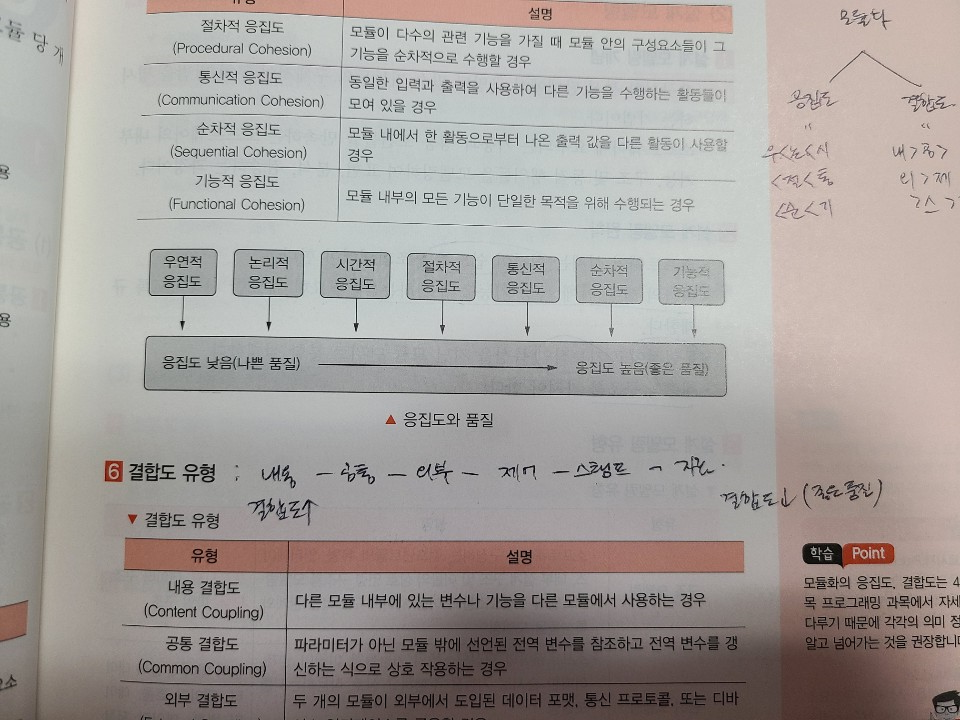 유형
설명
절차적 응집도
(Procedural Cohesion)
모듈이 다수의 관련 기능을 가질 때 모듈 안의 구성요소들이 그
기능을 순차적으로 수행할 경우
통신적 응집도
(Communication Cohesion)
동일한 입력과 출력을 사용하여 다른 기능을 수행하는 활동들이
모여 있을 경우
순차적 응집도
(Sequential Cohesion)
모듈 내에서 한 활동으로부터 나온 출력 값을 다른 활동이 사용할
경우
기능적 응집도
(Functional Cohesion)
모듈 내부의 모든 기능이 단일한 목적을 위해 수행되는 경우
우연적
응집도
논리적
응집도
시간적
응집도
절차적
응집도
통신적
응집도
순차적
응집도
기능적
응집도
응집도 낮음(나쁜 품질)
응집도 높음(좋은 품질)
▲ 응집도와 품질
6 결합도 유형 : 내용 - 공통 - 외부 - 제어 - 스탬프 - 자료
결합도↑
결합도↓ (좋은품질)
▼ 결합도 유형
유형
설명
내용 결합도
(Content Coupling)
다른 모듈 내부에 있는 변수나 기능을 다른 모듈에서 사용하는 경우
공통 결합도
(Common Coupling)
파라미터가 아닌 모듈 밖에 선언된 전역 변수를 참조하고 전역 변수를 갱
신하는 식으로 상호 작용하는 경우
외부 결합도
두 개의 모듈이 외부에서 도입된 데이터 포맷, 통신 프로토콜, 또는 디바
모듈화
응집도
결합도
우<논<시
<절<통
<순<기
내>공>
외>제
>스>
학습 Point
모듈화의 응집도, 결합도는 4
목 프로그래밍 과목에서 자세
다루기 때문에 각각의 의미 정
알고 넘어가는 것을 권장합니